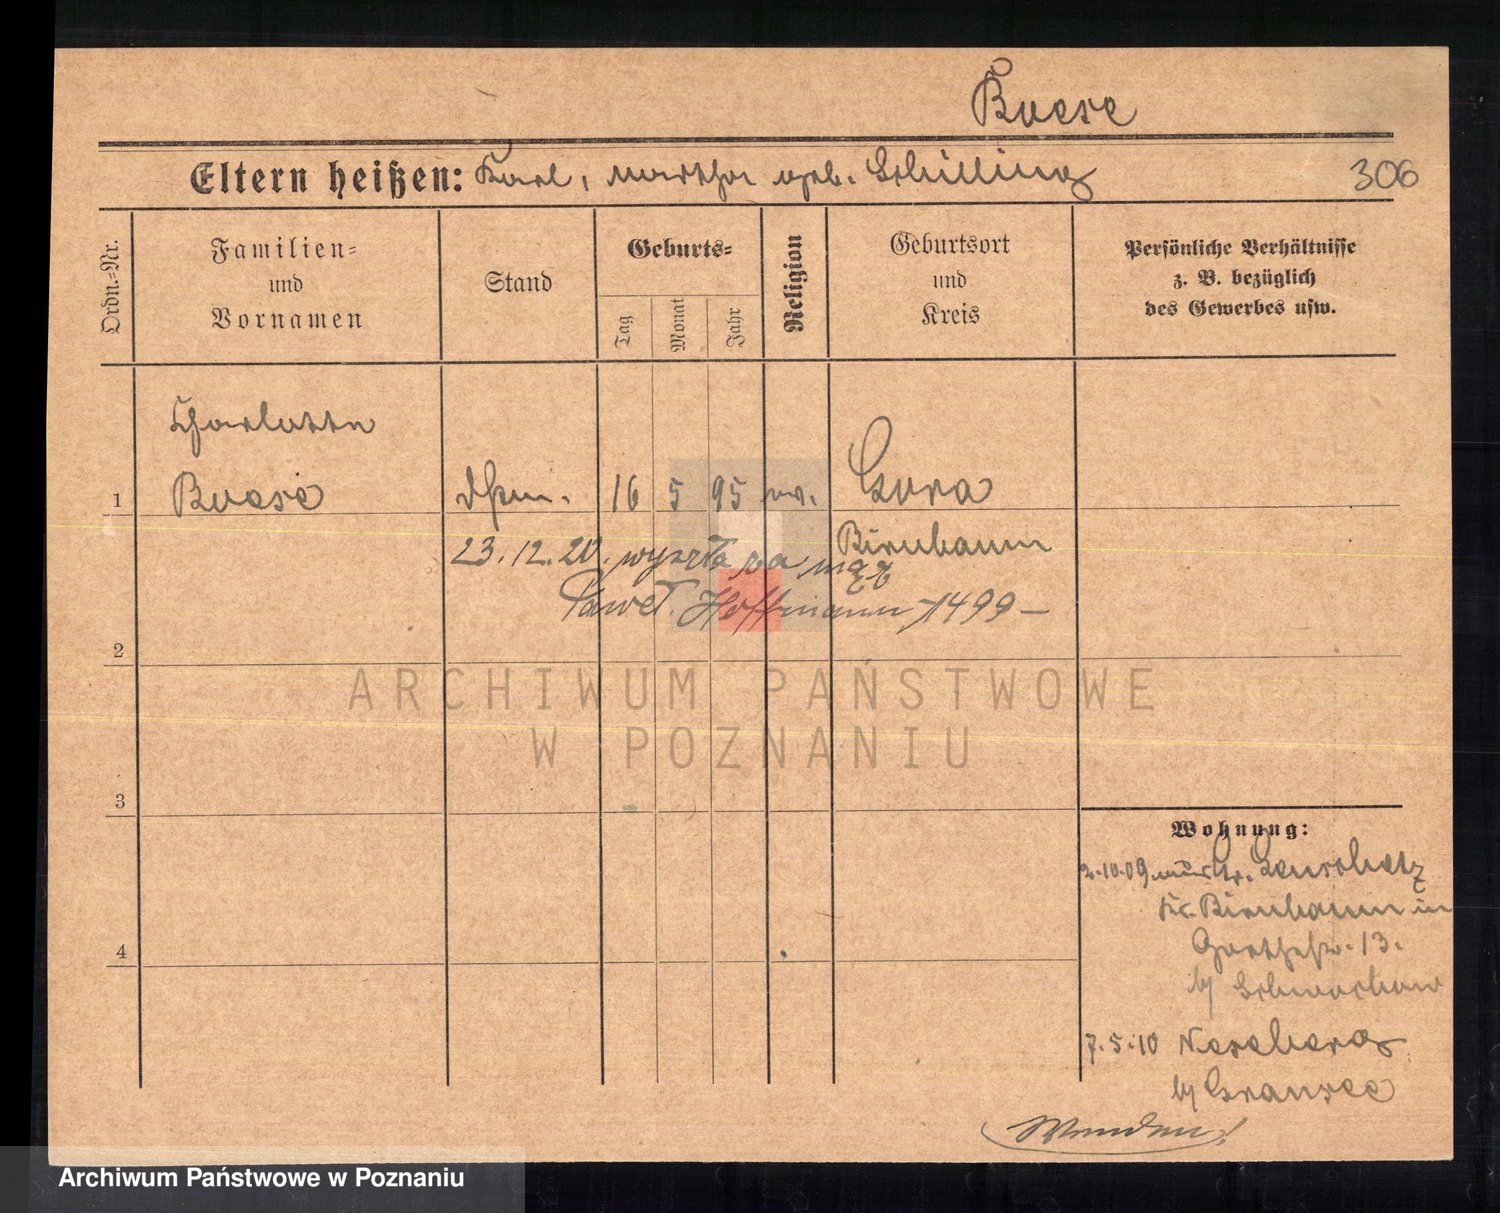 Boese
Eltern heißen: Karl, Martha geb. Schilling
306
Ordn.=Nr.
Familien=
und
Vornamen
Stand
Geburts=
Tag
Monat
Jahr
Religion
Geburtsort
und
Kreis
Persönliche Verhältnisse
z. B. bezüglich
des Gewerbes usw.
Charlotte
1 Boese 16 5 95 ev. Gora
Birnbaum
23.12.20. wyszła za mąż
Paweł Hoffmann 1499 –
2
ARCHIWUM PAŃSTWOWE
W POZNANIU
3
Wohnung:
2.10.09
Kr. Birnbaum in
13.
4
b/ Schwochow
7.5.10
b/ Gransee
Wenden!
Archiwum Państwowe w Poznaniu